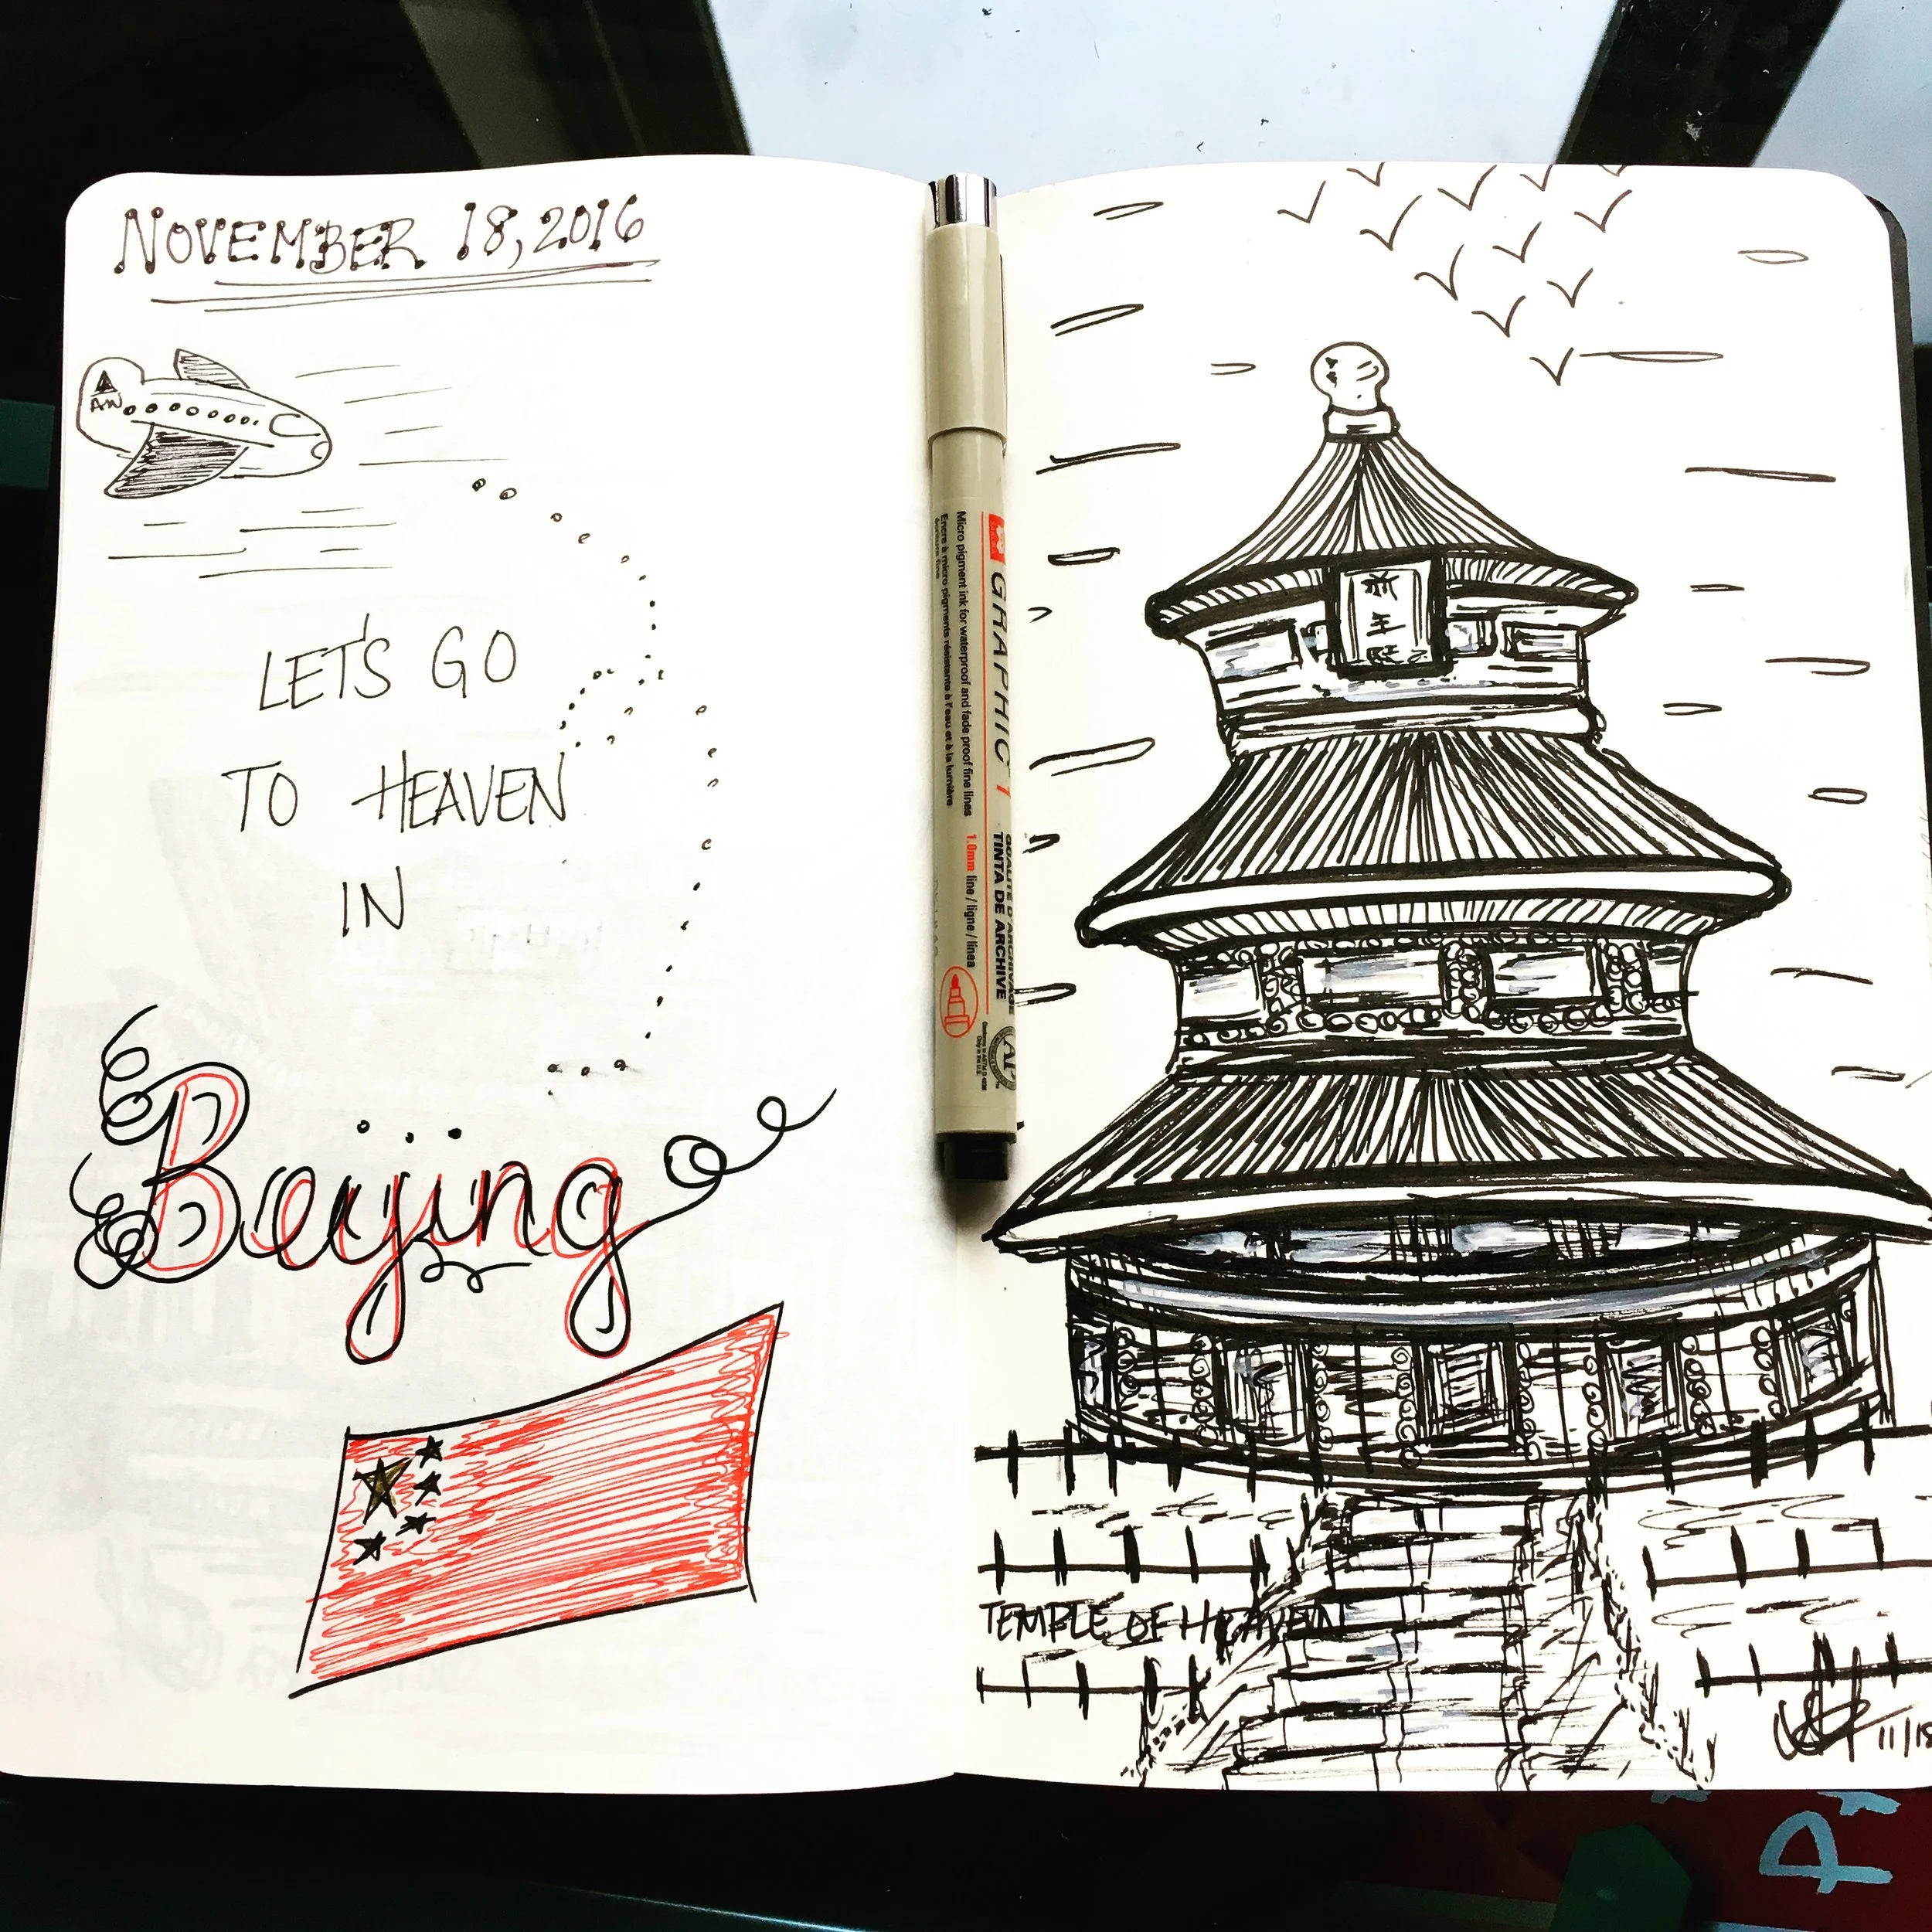 NOVEMBER 18, 2016
AW
LET'S GO
TO HEAVEN
IN
Beijing
GRAPHIC 1
Micro pigment ink for waterproof and fade proof fine lines
Encre à micro pigments résistante à l'eau et à la lumière
1.0mm line / ligne / línea
QUALITÉ D'ARCHIVAGE
TINTA DE ARCHIVE
AP
年
TEMPLE OF HEAVEN
11/18